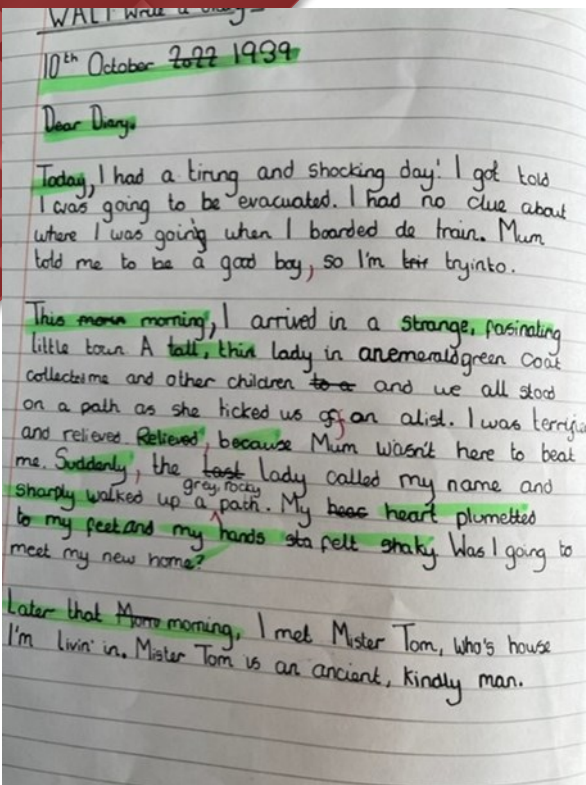 WALT Write a diary
10th October 2022 1939
Dear Diary.
Today, I had a tiring and shocking day! I got told
I was going to be evacuated. I had no clue about
where I was going when I boarded de train. Mum
told me to be a good boy, so I'm tryinto.
This morning, I arrived in a strange, fasinating
little town A tall, thin lady in anemeraldgreen coat
collectsme and other children to a and we all stood
on a path as she ticked us off an alist. I was terrifi
and relieved Relieved, because Mum wasn't here to beat
me. Suddenly, the last lady called my name and
grey, rocky
sharply walked up a path. My heart plumetted
to my feet and my hands sta felt shaky. Was I going to
meet my new home?
Later that morning, I met Mister Tom, who's house
I'm livin' in. Mister Tom is an ancient, kindly man.